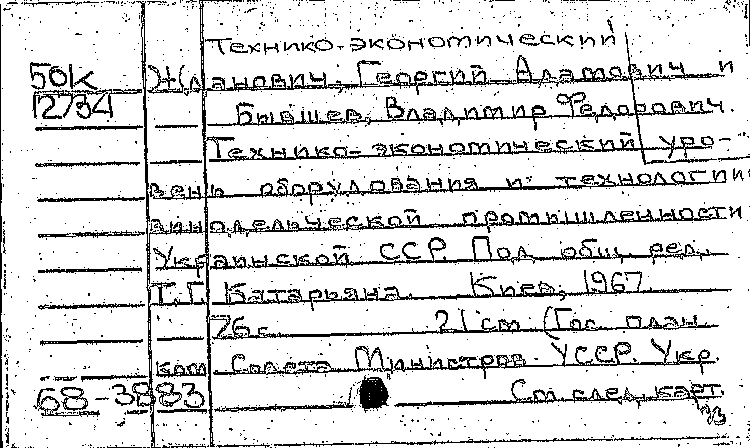 Технико-экономический
50К Жданович, Георгий Адамович и
12734 Бывшев, Владимир Федорович.
Технико-экономический уро-
вень оборудования и технологии
винодельческой промышленности
Украинской ССР. Под общ. ред.
Т.Г. Катарьяна. Киев, 1967.
76 с. 21 cm (Гос. план.
ком. Совета Министров УССР. Укр.
68-3883 См. след. карт.